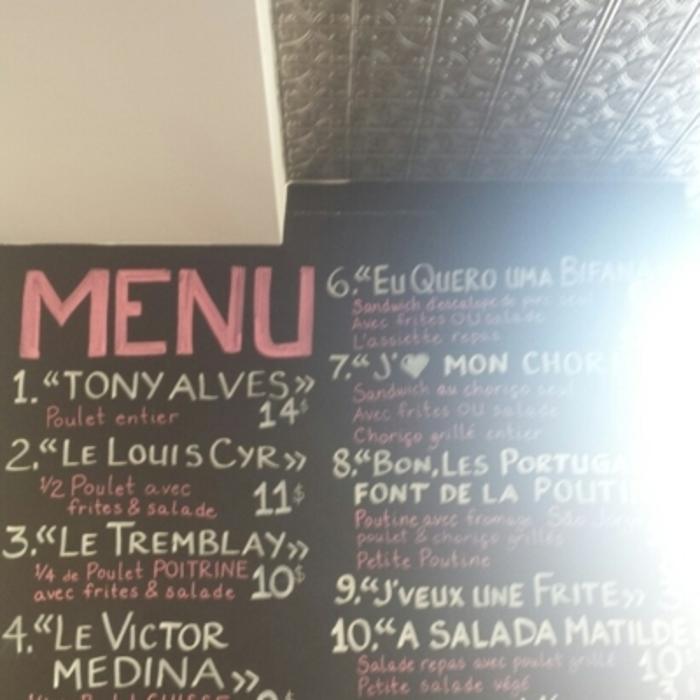 MENU
1. “TONY ALVES”
Poulet entier 14$
2. “LE LOUIS CYR”
1/2 Poulet avec
frites & salade 11$
3. “LE TREMBLAY”
1/4 de Poulet POITRINE
avec frites & salade 10$
4. “LE VICTOR
MEDINA”
6. “EU QUERO UMA BIFANA
Sandwich d'escalope de porc seul
Avec frites OU salade
L'assiette repas
7. “J'♥ MON
Sandwich au choriço seul
Avec frites OU salade
Choriço grillé entier
8. “BON, LES
FONT DE LA
Poutine avec fromage São Jorge
poulet & choriço grillés
Petite Poutine
9. “J'VEUX UNE FRITE”
10. “A SALADA MATILDE
Salade repas avec poulet grillé 10
Petite salade végé